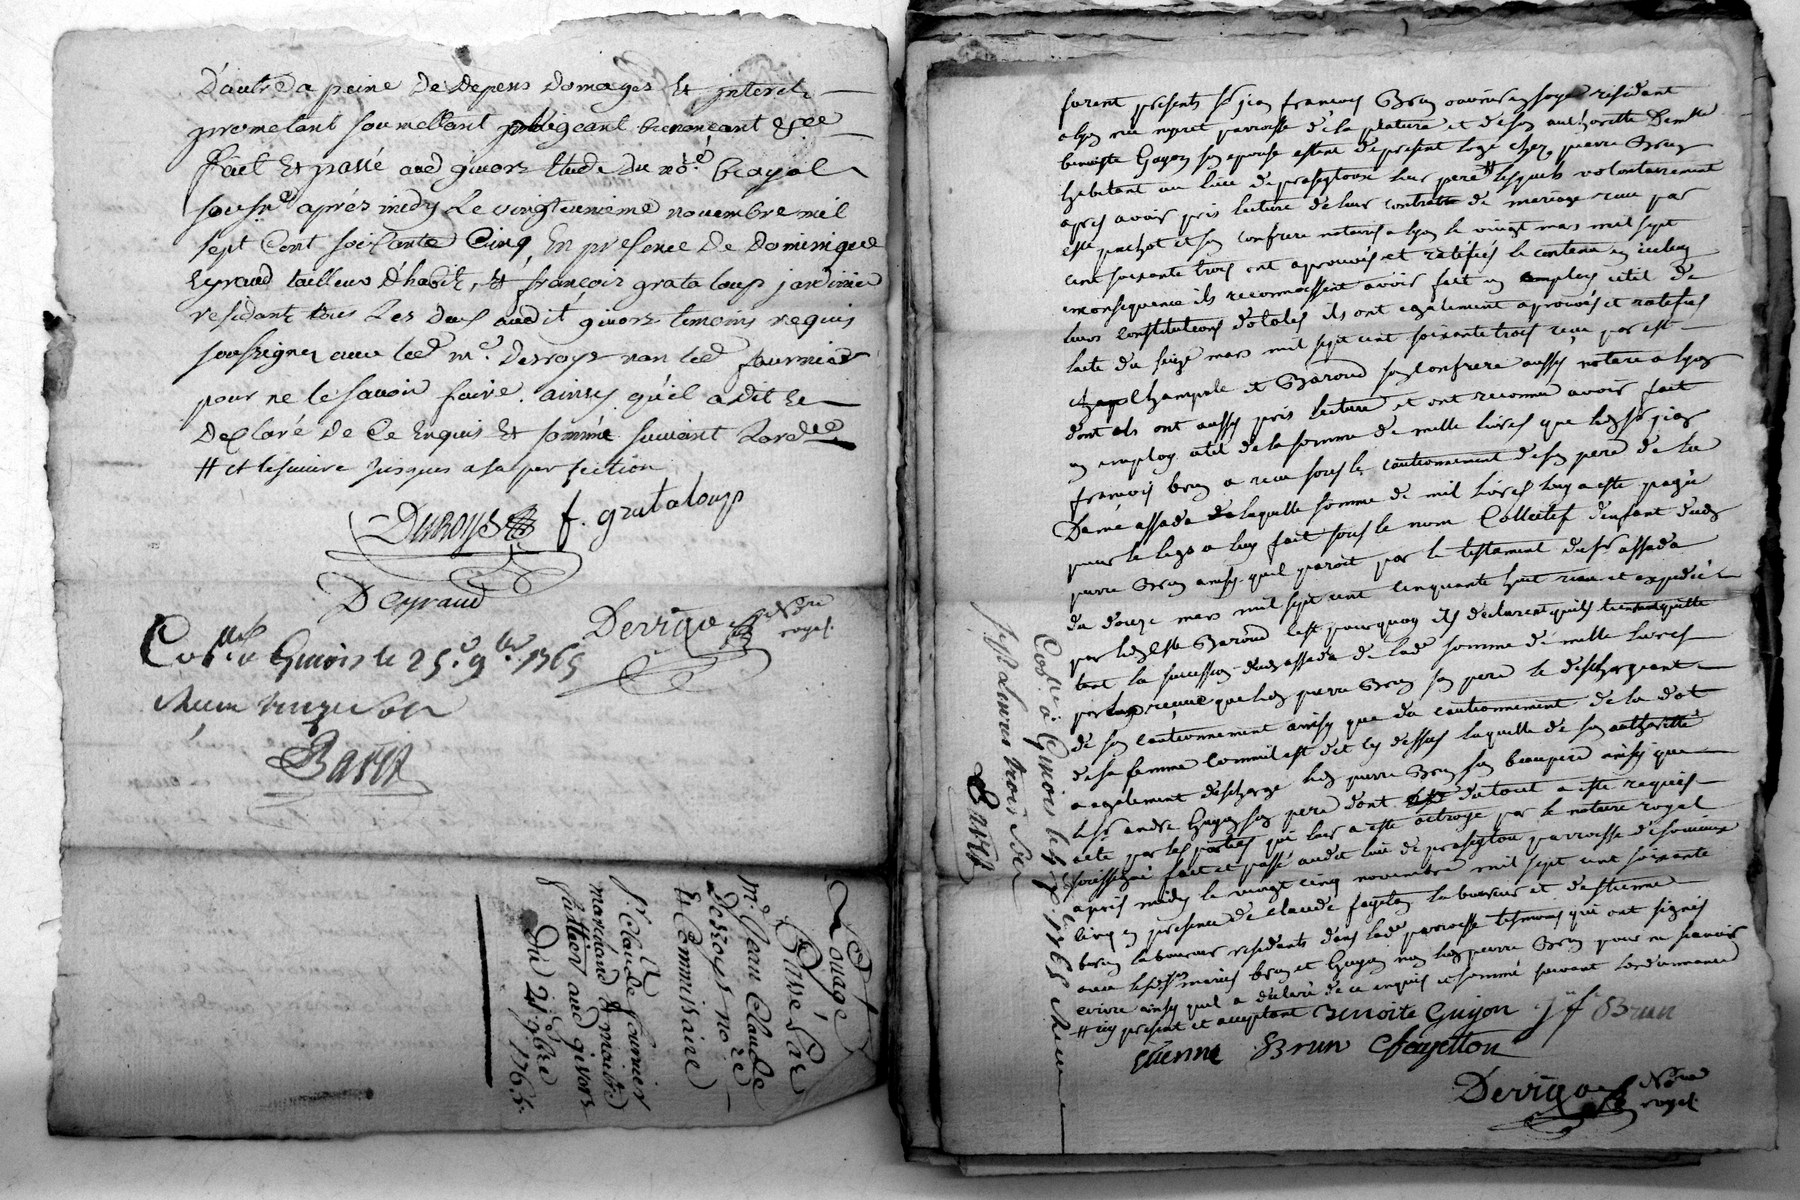 D'autre a peine de depens domages Et interets
prometant soumettant obligeant Renonçant &cee
fait Et passé aud givors Etude du no.re Royal
soussne après midy Le vingtunieme novembre mil
sept Cent soixante Cinq, En presence de dominique
Deyraud tailleur d'habit, Et françois grataloup jardinier
residants tous Les deux audit givors temoins requis
soussignez avec led me. Desroys non led fournier
pour ne le savoir faire. ainsy qu'il a dit Et
Declaré de Ce Enquis Et sommé suivant Lordce
# et le suivre jusques a sa perfection
Duroys f. grataloup
Deyraud
Derrigo Nore royal.
Collé a Givors le 25. 9bre. 1765
Baret
Louage
Passé Par
me. Jean Claude
Desroys nore
Et Commissaire
A
sr. Claude fournier
marchand Et maitre
aud givors
Du 21. 9bre
1765.
furent presents sr jean francois Brun ouvrier en soye residant
a lyon rue mpret parroisse de la platiere et de son authorité Demlle
benoiste Guyon son epouse estant de present logé chez pierre Brun
habitant au lieu de prasseytoux leur pere # lesquels volontairement
apres avoir pris lecture de leur contrat de mariage recu par
Me pachot et son confrere notaires a lyon le vingt mars mil sept
cent soixante trois ont aprouvés et ratifiés le contenu en iceluy
en consequence ils reconnoissent avoir fait un employ util de
leurs constitutions dotales ils ont egalement aprouvés et ratifiés
lacte du seize mars mil sept cent soixante trois recu par Me
Champole et Baroud son confrere aussy notaire a lyon
dont ils ont aussy pris lecture et ont reconnu avoir fait
un employ util de la somme de mille livres que ledit sr jean
francois brun a recu sous le cautionnement de son pere de la
Dame assada de laquelle somme de mil livres luy a esté payée
pour le legs a luy fait sous le nom Collectif d'enfant dudit
pierre Brun ainsy quil paroit par le testament du sr assada
du douze mars mil sept cent cinquante huit recu et expedié
par ledit Me Baroud cest pourquoy ils declarent quils tiennent quitte
tant la succession dudit assada de lade somme de mille livres
que ledit pierre Brun son pere le dechargeant
de son cautionnement ainsy que du cautionnement de la dot
de sa femme comme il est dit cy dessus laquelle de son authorité
a egalement decharge ledit pierre Brun son beaupere ainsy que
le sr andré Guyon son pere dont du tout a esté requis
acte par les parties qui leur a esté octroyé par le notaire royal
soussigné fait et passé audit lieu de prasseytoux parroisse d'
apres midy le vingt cinq novembre mil sept cent soixante
cinq en presence de claude fayeton laboureur et d'estienne
brun laboureur residants dans lade parroisse tesmoins qui ont signés
avec lesdits mariés brun et Guyon non ledit pierre Brun pour ne scavoir
ecrire ainsy quil a declaré de ce enquis et sommé suivant lordonnance
# icy present et acceptant Benoite Guyon jf Brun
Etienne Brun Cfayetton
Derrigo Nore royal
Collé à Givors le 1765
livres trois sols
Baret